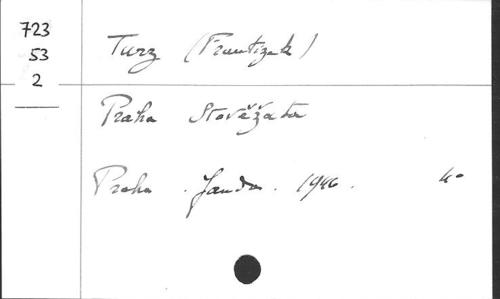 723
53
2
Turz (Frantizek)
Praha Stověžata
Praha . Janda . 1946 . 4°